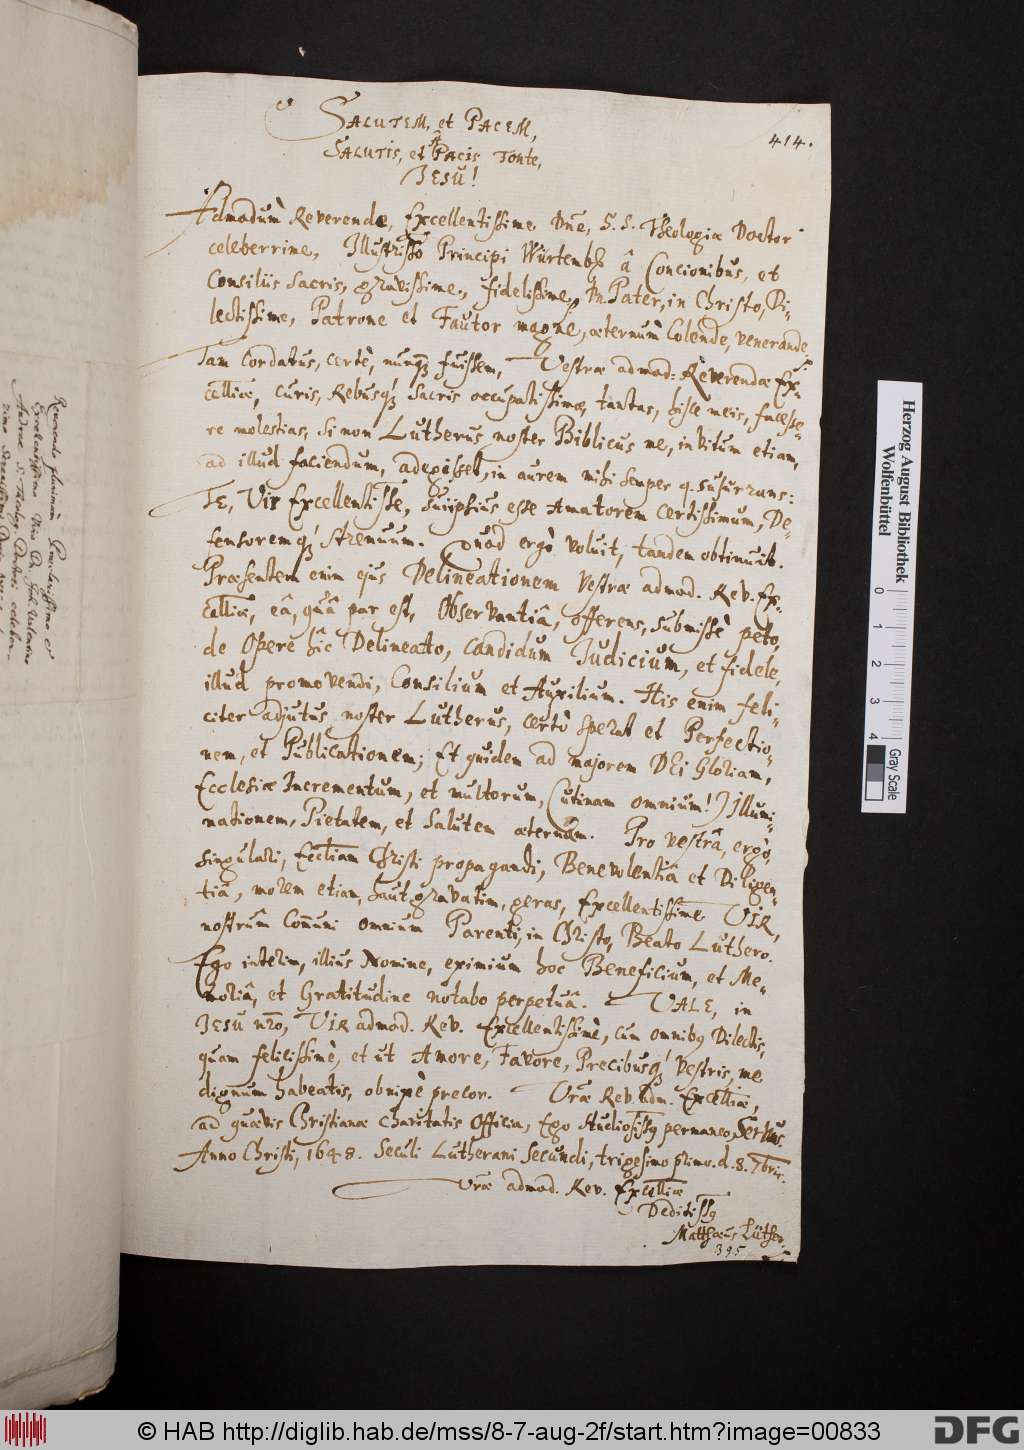 SALUTEM, et PACEM,
à
SALUTIS, et Pacis Fonte,
JESU!
414.
Admodùm Reverende, Excellentissime Dne, S. S. Theologiæ Doctor
celeberrime, Illustrissõ Principi Würtemb. â Concionibus, et
Consiliis Sacris, gravissime, fidelissime, Dn. Pater, in Christo, Di-
lectissime, Patrone et Fautor magne, æternùm Colende, venerande
Tam Cordatus, certè, nunq̃ fuissem, Vestræ admod: Reverendæ Ex-
cellliæ, curis, Rebusq́ Sacris occupatissimæ, tantas, hisce meis, facesse-
re molestias, Si non Lutherus noster Biblicus me, invitum etiam,
ad illud faciendum, adegisset, in aurem mihi semper q. susurrans:
TE, Vir Excellentisse, Suiipsius esse Amatorem certissimum, De-
fensoremq́ strenuum. Quod ergò voluit, tandem obtinuit.
Præsentem enim ejus Delineationem Vestræ admod. Rev. Ex-
cellliæ, eâ, quâ par est, Observantiâ, offerens, submissè peto,
de Opere hîc Delineato, candidum Judicium, et fidele,
illud promovendi, Consilium et Auxilium. His enim feli-
citer adjutus noster Lutherus, certò sperat et Perfectio-
nem, et Publicationem; Et quidem ad majorem DEi Gloriam,
Ecclesiæ Incrementum, et multorum, (utinam omnium!) Illumi-
nationem, Pietatem, et Salutem æternam. Pro vestrâ, ergò,
singulari, Eccliam Christi propagandi, Benevolentiâ et Diligen-
tiâ, morem etiam, haut gravatim, geras, Excellentissime VIR,
nostrûm Com̃uni omnium Parenti, in Christo, Beato Luthero.
Ego interim, illius Nomine, eximium hoc Beneficium, et Me-
moriâ, et Gratitudine notabo perpetuâ. VALE, in
JESU nr̃o, VIR admod. Rev. Excellentissimè, cum omnibq Dilectis,
quam felicissimè, et ut Amore, Favore, Precibusq́ Vestris, me
dignum habeatis, obnixè precor. Vræ Rev. adm. Excelliæ,
ad quævis Christianæ Charitatis Officia, Ego Studiosissq permaneo, Servus.
Anno Christi, 1648. Seculi Lutherani Secundi, trigesimo primo. d. 8. 7bris.
Vræ admod. Rev. Excelliæ
Deditissq
Matthæus Lüther
395
Reverendo plurimùm Præclarissimo &
Excellentissimo Viro Dn. Joh. Valentino
Andreæ S. S. Theolog. Doctori celeber-
Herzog August Bibliothek
Wolfenbüttel
0 1 2 3 4
Gray Scale
© HAB http://diglib.hab.de/mss/8-7-aug-2f/start.htm?image=00833
DFG